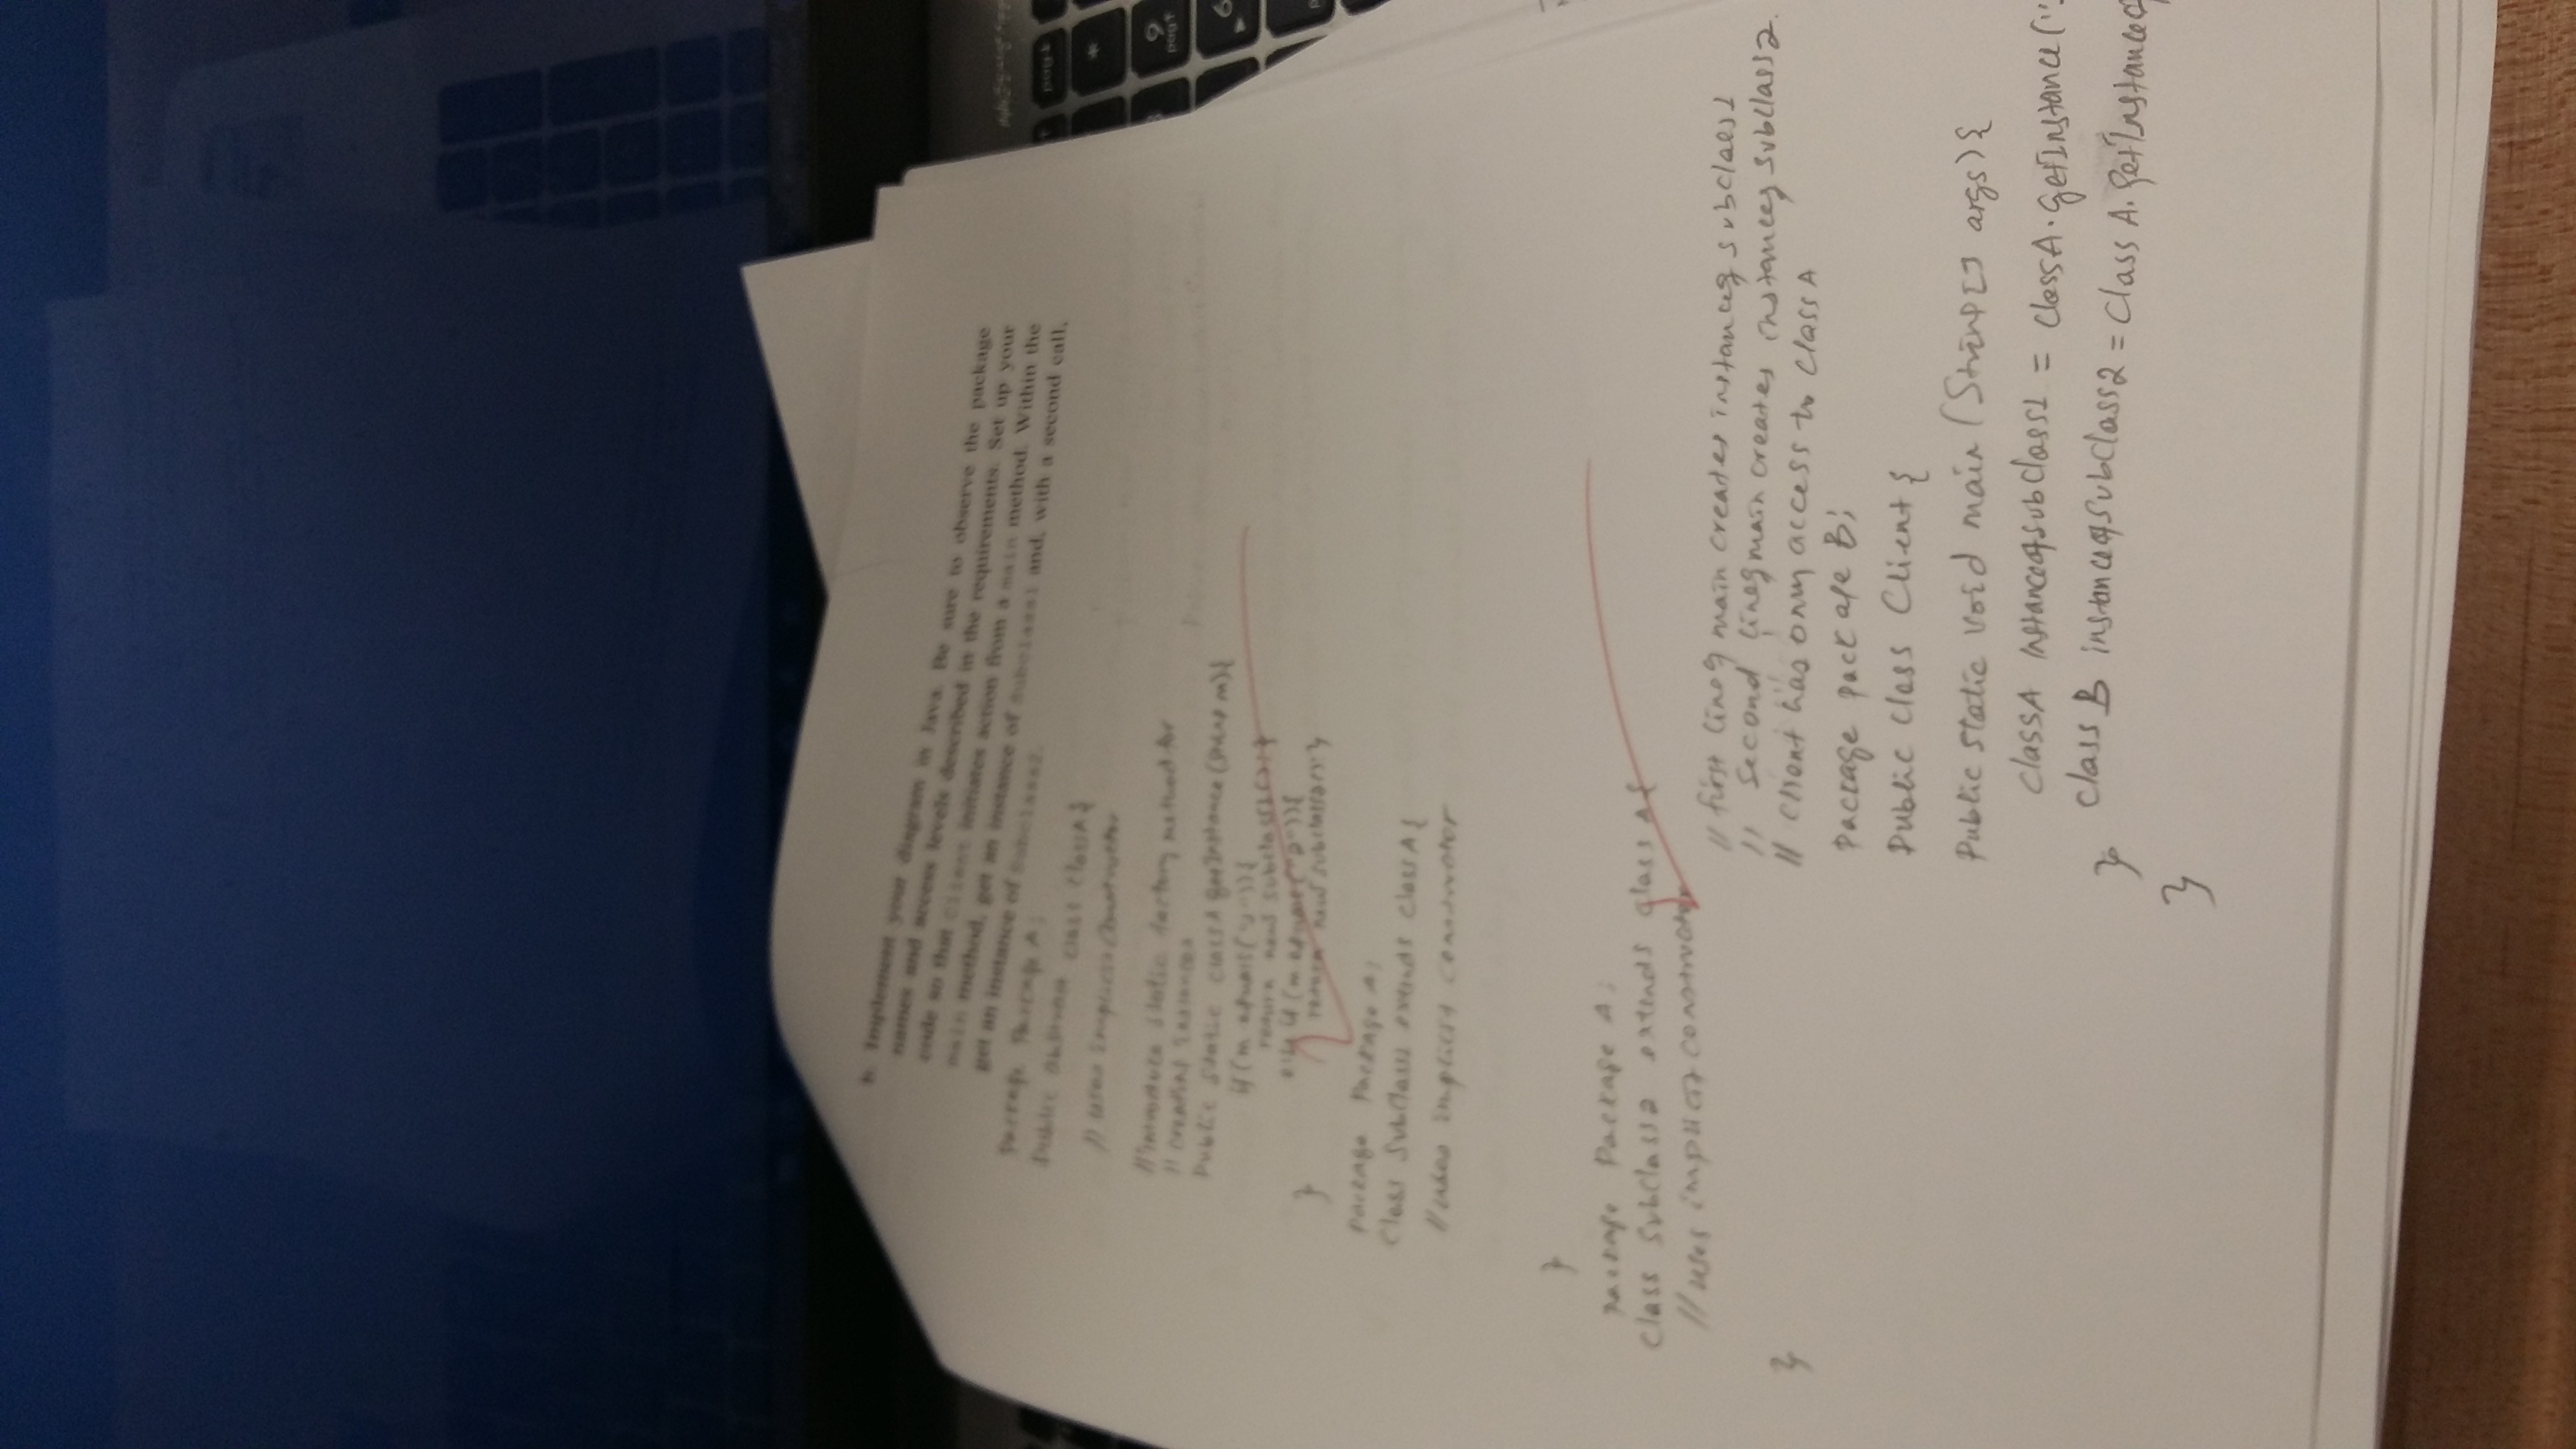 b. Implement your diagram in Java. Be sure to observe the package
names and access levels described in the requirements. Set up your
code so that Client initiates action from a main method. Within the
main method, get an instance of Subclass1 and, with a second call,
get an instance of Subclass2.
Package Package A;
Public abstract class ClassA{
// uses implicit constructor
// introduce static factory method for
// creating instances
Public static classA getInstance (String m){
if (m.equals("1")){
return new subclass1(); }
else if (m.equals("2")){
return new subclass2(); }
}
package Package A;
Class Subclass1 extends classA{
// uses implicit constructor
}
package Package A;
Class Subclass2 extends class A{
// uses implicit constructor
}
// first line of main creates instance of subclass1
// Second line of main creates instance of subclass2.
// client has only access to classA
Package package B;
Public class Client {
Public static void main (String[] args) {
classA instanceofsubclass1 = classA.getInstance("1
class B instanceofsubclass2 = Class A.getInstanceof
}
}
pag↑
*
9
pag↑
6